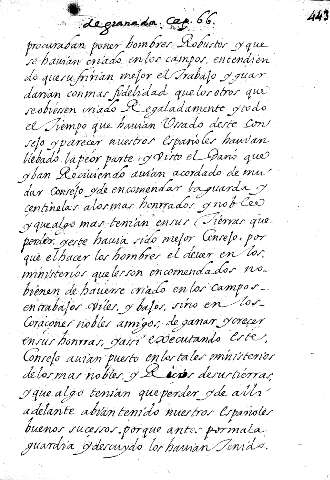 de granada. Cap. 66.
443
procuraban poner hombres Robustos y que
se havian criado en los campos, entendien
do que sufririan mejor el Trabajo y guar
darian con mas fidelidad que los otros que
se obiesen criado Regaladamente y todo
el Tiempo que havian Usado deste Con
sejo y parecer nuestros Españoles havian
llebado la peor parte, y Visto el Daño que
yban Reciviendo avian acordado de mu
dar Consejo y de encomendar la guarda y
centinelas a los mas honrrados y nobles
y que algo mas tenian en sus Tierras que
perder, y este havia sido mejor Consejo. por
que el hacer los hombres el dever en los
ministerios que les son encomendados no
bienen de haverse criado en los campos
en trabajos Viles, y bajos, sino en los
Coraçones nobles amigos, de ganar y crecer
en sus honrras, y assi executando este
Consejo avian puesto en los tales ministerios
de los mas nobles, y Ricos de sus tierras,
y que algo tenian que perder, y de alli
adelante abian tenido nuestros Españoles
buenos sucessos, porque antes por mala
guardia y descuydo los havian Tenido.